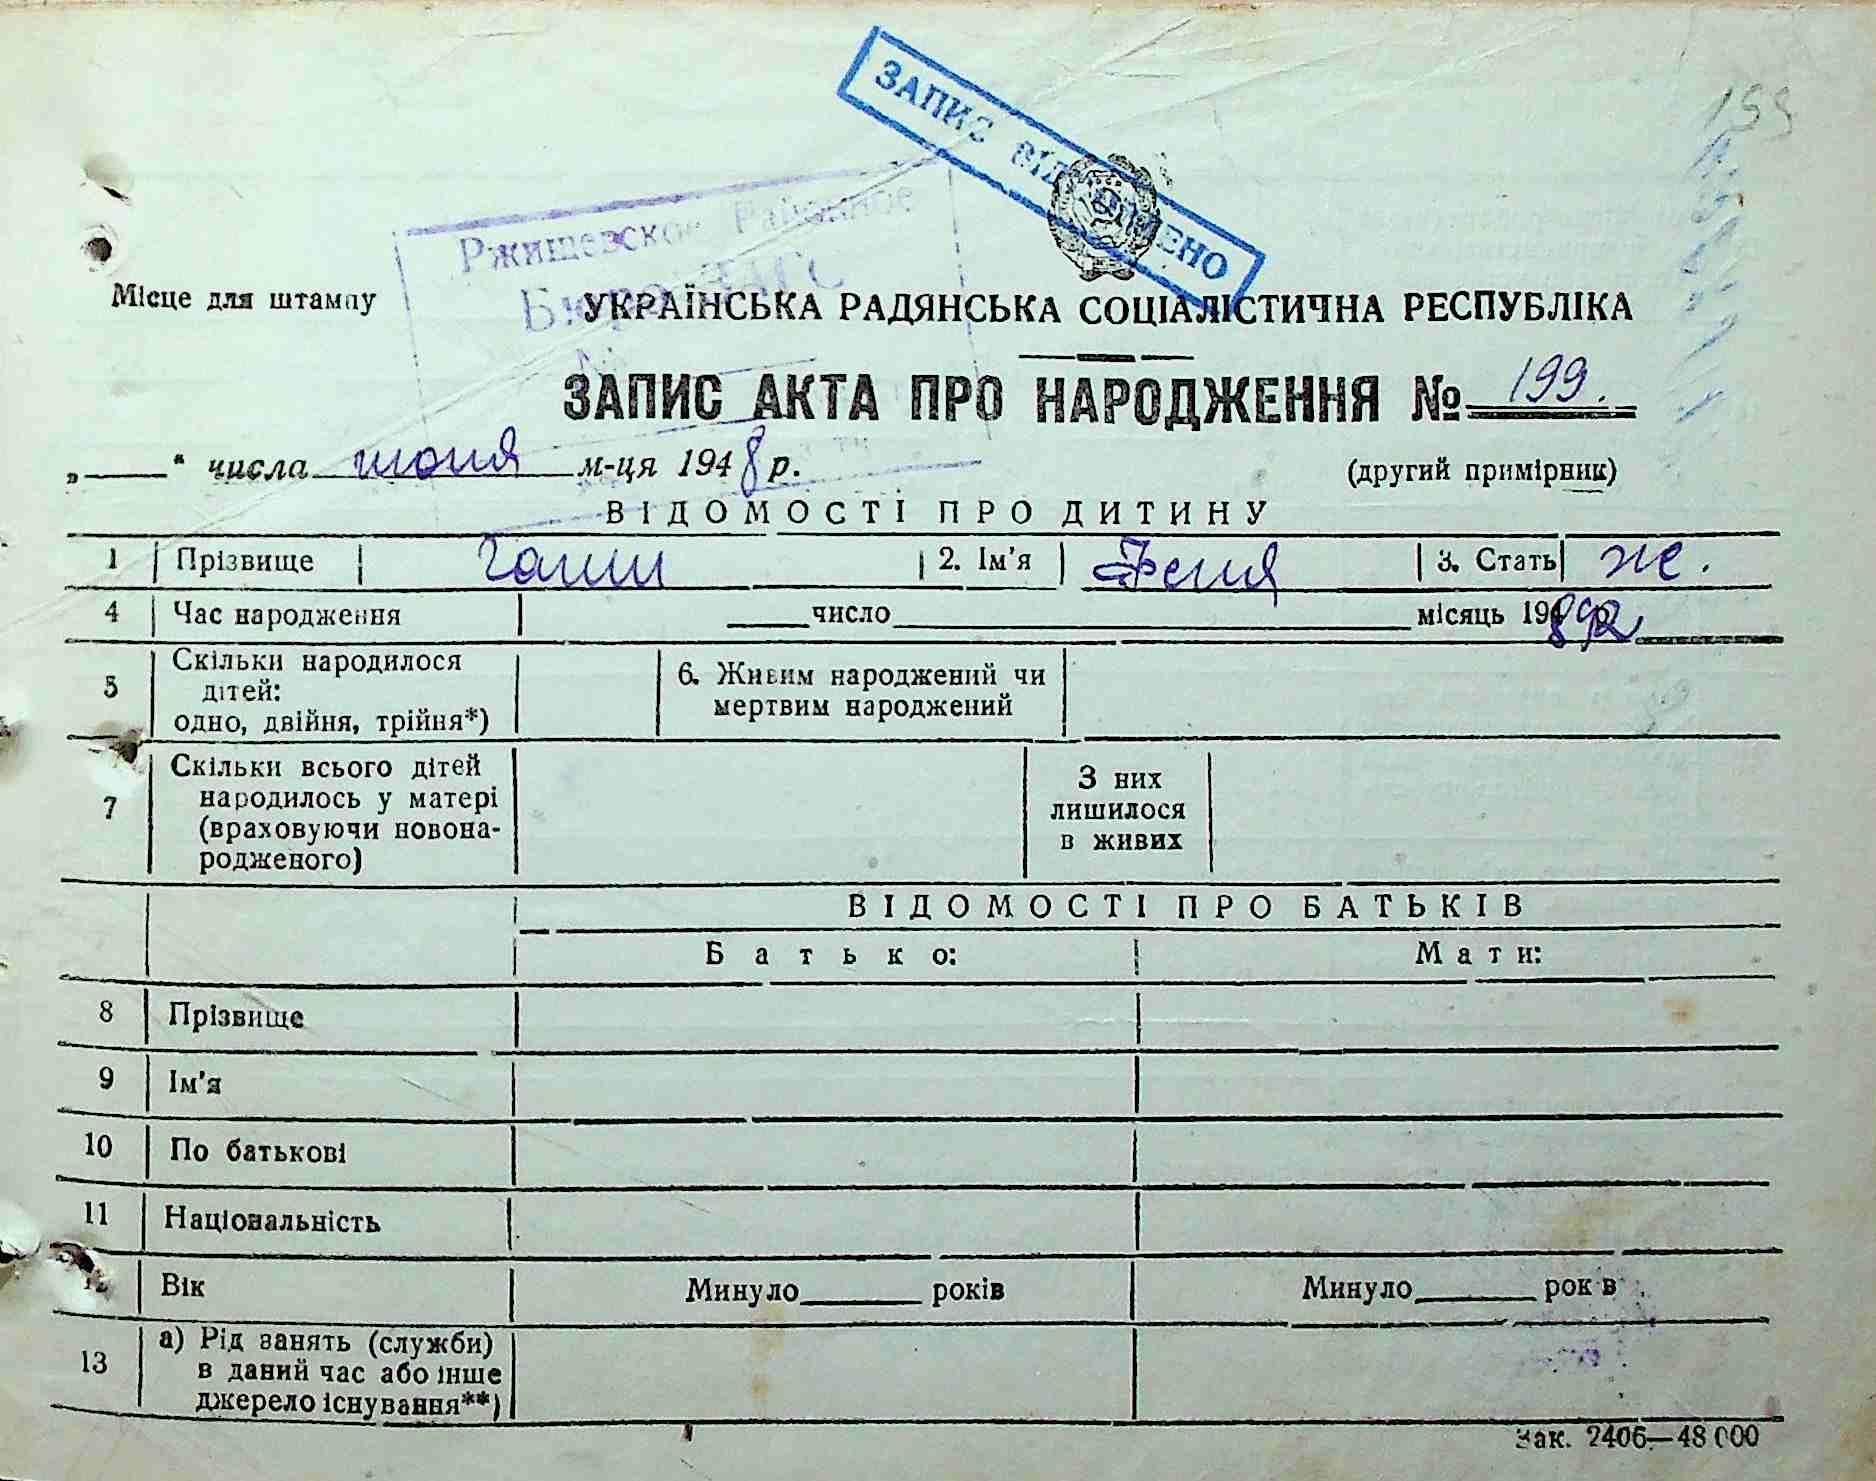 199
ЗАПИС ВІДМІНЕНО
Ржищевское Районное
Бюро ЗАГС
№
Місце для штампу
УКРАЇНСЬКА РАДЯНСЬКА СОЦІАЛІСТИЧНА РЕСПУБЛІКА
ЗАПИС АКТА ПРО НАРОДЖЕННЯ № 199.
„___“ числа июня м-ця 1948 р.
(другий примірник)
ВІДОМОСТІ ПРО ДИТИНУ
1 Прізвище 2. Ім'я Феня 3. Стать ж.
4 Час народження ___ число ___ місяць 194 р.
5 Скільки народилося дітей: одно, двійня, трійня*) 6. Живим народжений чи мертвим народжений
7 Скільки всього дітей народилось у матері (враховуючи новонародженого) З них лишилося в живих
ВІДОМОСТІ ПРО БАТЬКІВ
Батько: Мати:
8 Прізвище
9 Ім'я
10 По батькові
11 Національність
12 Вік Минуло___ років Минуло___ років
13 а) Рід занять (служби) в даний час або інше джерело існування**)
Зак. 2406—48 000